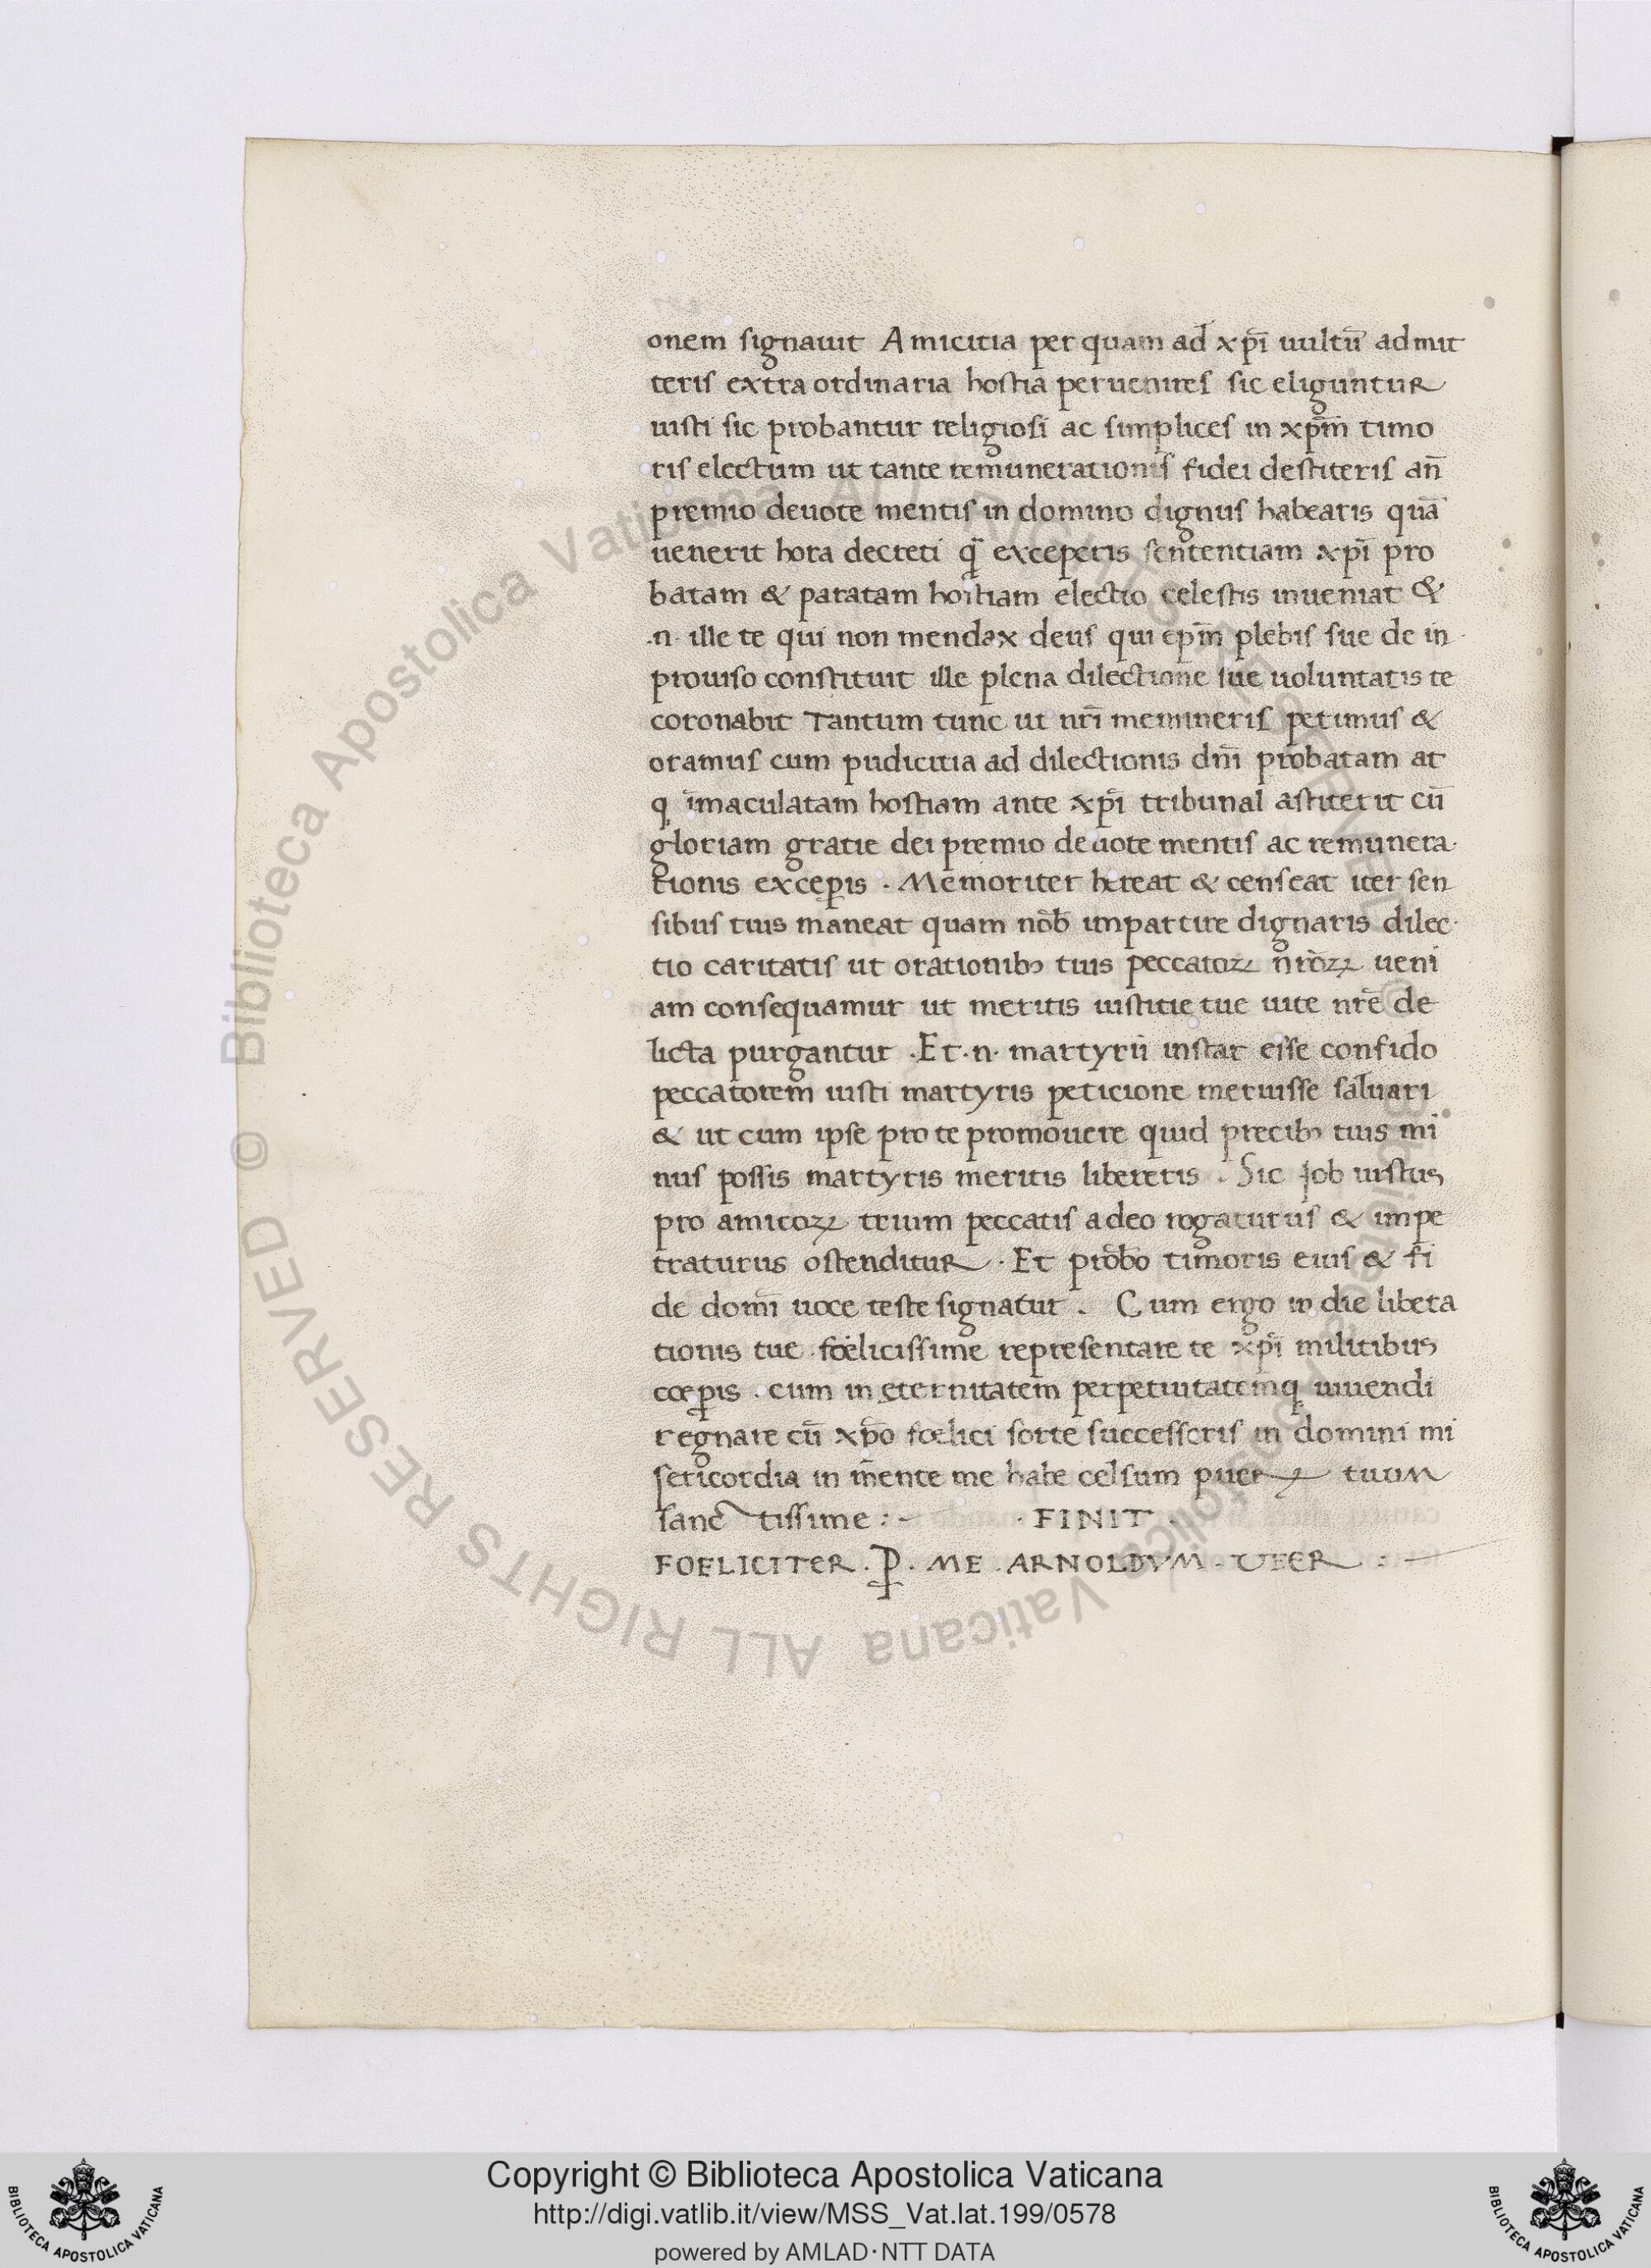 onem signauit Amicitia per quam ad xp̄i uultū admit
teris extra ordinaria hostia peruenires sic eliguntur
iusti sic probantur religiosi ac simplices in xp̄m timo
ris electum ut tante remunerationis fidei destiteris an̄
premio deuote mentis in domino dignus habearis quā
uenerit hora decreti q̄ exceperis sententiam xp̄i pro
batam & paratam hostiam electio celestis inueniat &
·n· ille te qui non mendax deus qui ep̄m plebis sue de in
prouiso constituit ille plena dilectione sue uoluntatis te
coronabit Tantum tunc ut nr̄i memineris petimus &
oramus cum pudicitia ad dilectionis dn̄i probatam at
q̨ īmaculatam hostiam ante xp̄i tribunal astiterit cū
gloriam gratie dei premio deuote mentis ac remunera·
tionis excep̱is · Memoriter hereat & censeat iter sen
sibus tuis maneat quam nōb impartire dignaris dilec·
tio caritatis ut orationibꝫ tuis peccatoꝝ nr̄oꝝ ueni
am consequamur ut meritis iustitie tue uite nrē de
licta purgantur · Et ·n· martyrii instar esse confido
peccatorem iusti martyris peticione meruisse saluari
& ut cum ipse pro te promouere quid precibꝫ tuis mi
nus possis martyris meritis libereris · Sic Job iustus
pro amicoꝝ trium peccatis adeo rogaturus & impe
traturus ostenditur · Et prōbo timoris eius & fi
de domī uoce teste signatur . Cum ergo in die libera
tionis tue fœlicissime representare te xp̄i militibus
cœꝑis . cum in ęternitatem perpetuitatemq̨ uiuendi
regnare cū xp̄o fœlici sorte successeris in domini mi
sericordia in mente me habe celsum pueꝝ tuum
sanctissime : - · FINIT ·
FOELICITER . Ꝑ . ME . ARNOLDVM . VEER : -
© Biblioteca Apostolica Vaticana ALL RIGHTS RESERVED © Biblioteca Apostolica Vaticana ALL RIGHTS RESERVED
Copyright © Biblioteca Apostolica Vaticana
http://digi.vatlib.it/view/MSS_Vat.lat.199/0578
powered by AMLAD·NTT DATA
BIBLIOTECA APOSTOLICA VATICANA
BIBLIOTECA APOSTOLICA VATICANA